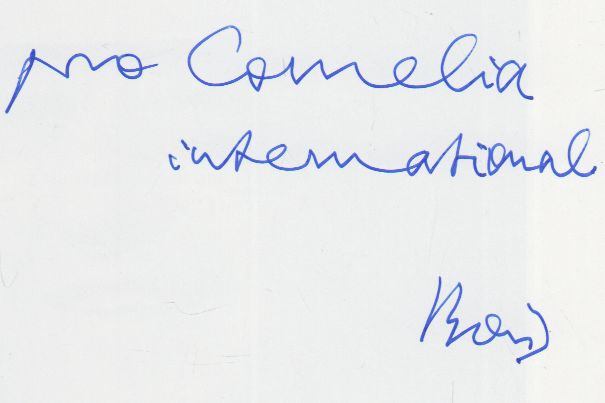 pro Cornelia
international
Boris